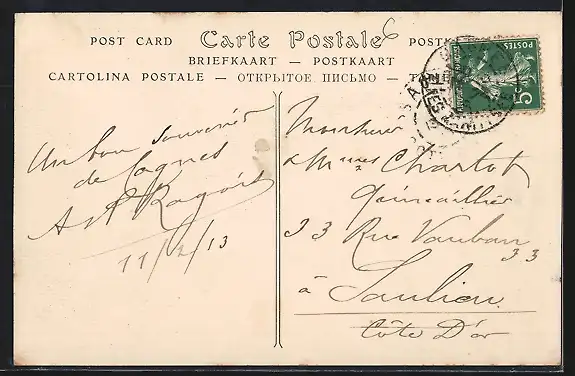 POST CARD Carte Postale 6 POSTK
BRIEFKAART — POSTKAART
CARTOLINA POSTALE — ОТКРЫТОЕ ПИСЬМО — T
POSTES
5c
Un bon souvenir
de Cagnes
A & T Ragois
11/2/13
Monsieur
& Mmes Charlot
Quincaillier
33 Rue Vauban 33
à Saulieu
Côte D'or